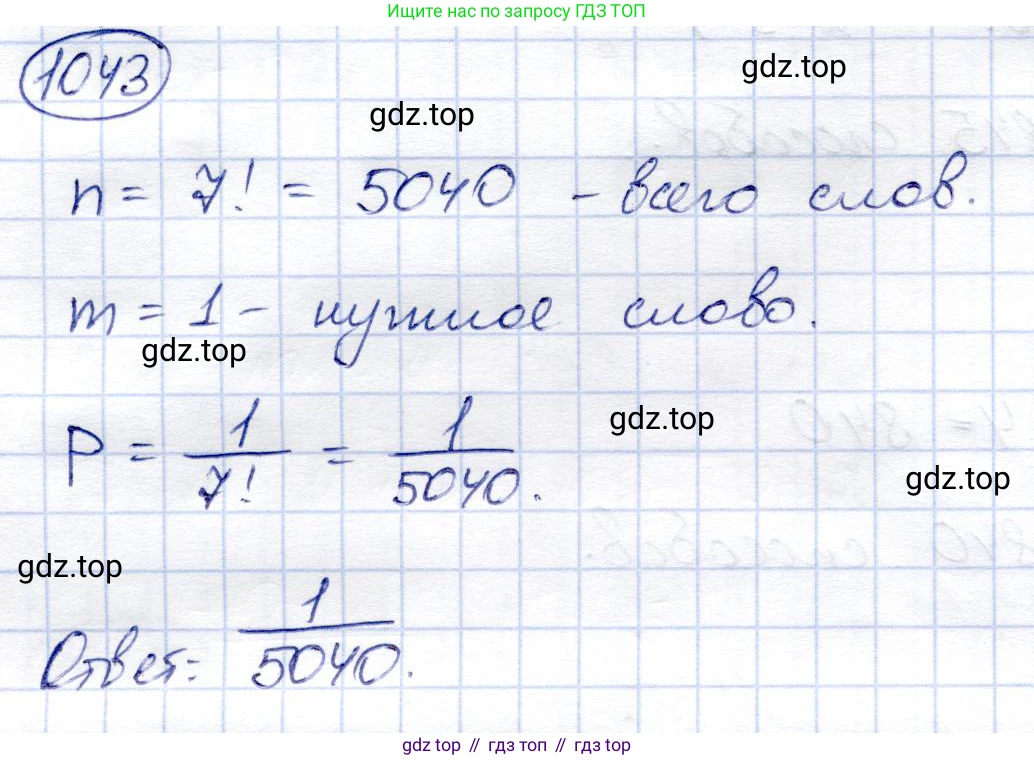 Ищите нас по запросу ГДЗ ТОП
1043
gdz.top
gdz.top
n = 7! = 5040 - всего слов.
m = 1 - нужное слово.
gdz.top
gdz.top
P = 1/7! = 1/5040.
gdz.top
gdz.top
Ответ: 1/5040.
gdz.top // гдз топ // gdz.top